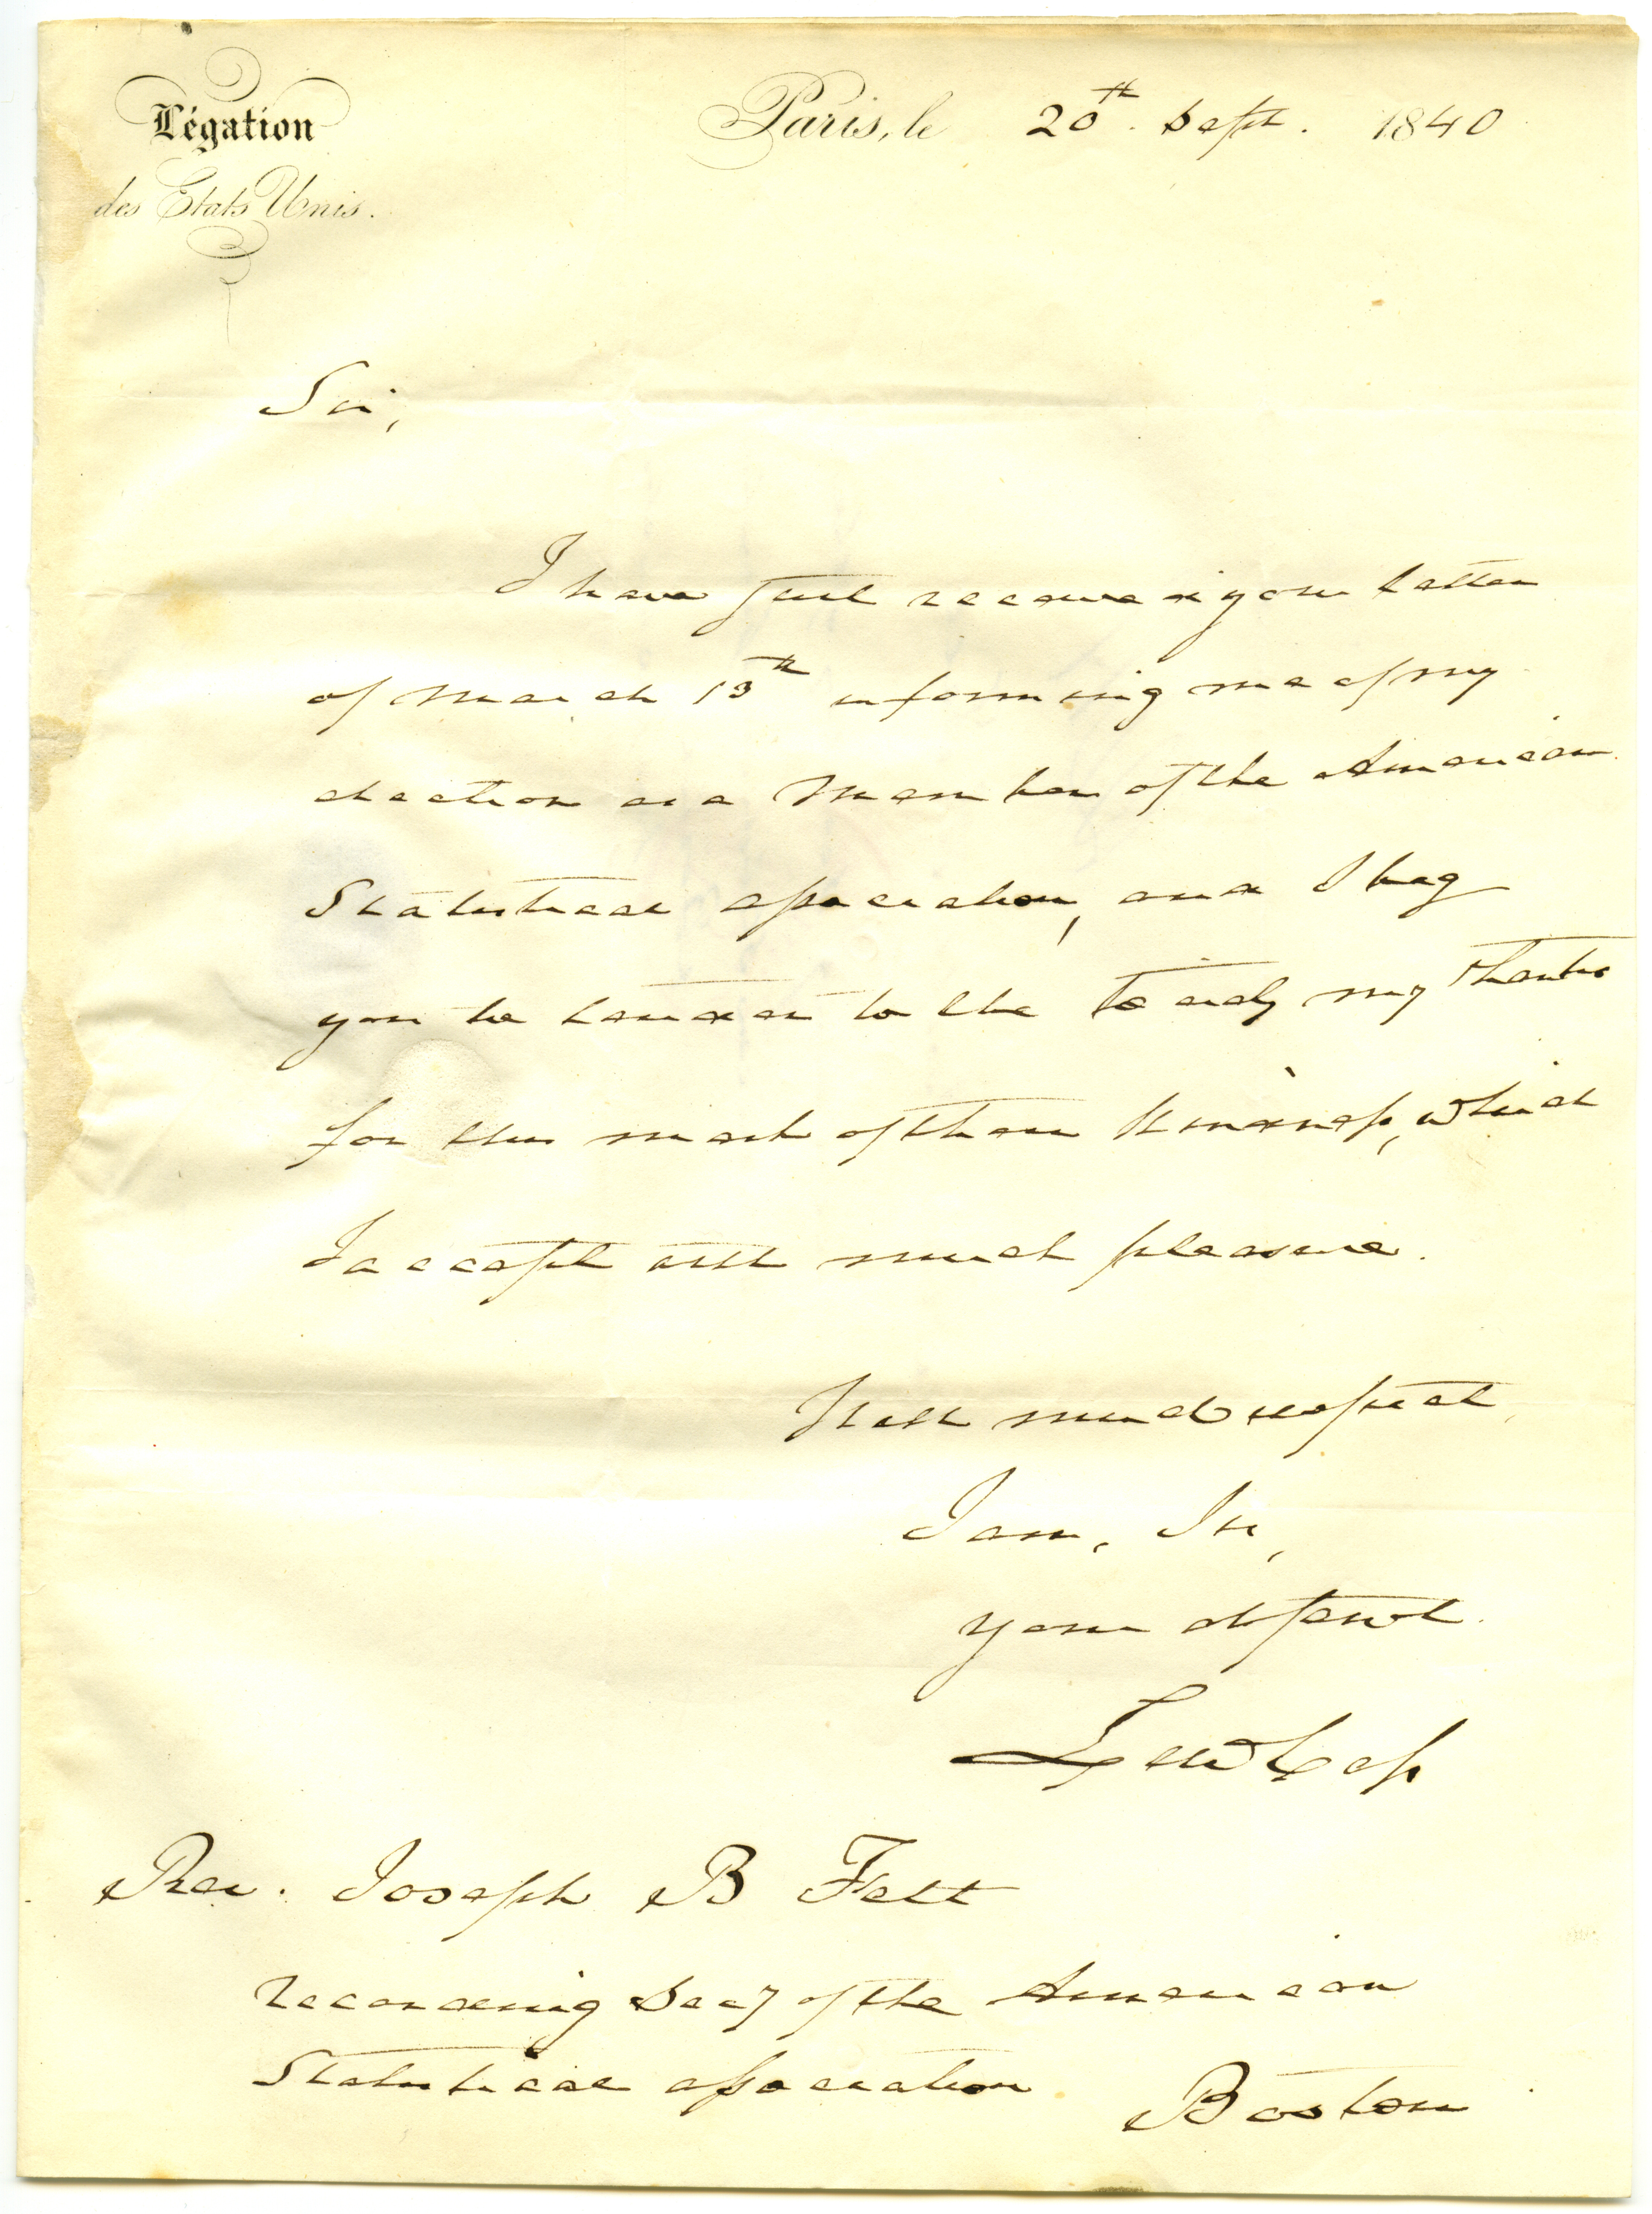 Légation
des Etats Unis.
Paris, le 20th. Sept. 1840
Sir,
I have just received your letter
of March 13th informing me of my
election as a Member of the American
Statistical association, and I beg
you to tender to the Society my thanks
for this mark of their kindness, which
I accept with much pleasure.
With much respect,
I am, Sir,
your obt servt.
Lew Cass
Rev. Joseph B Felt
recording Secy of the American
Statistical association
Boston